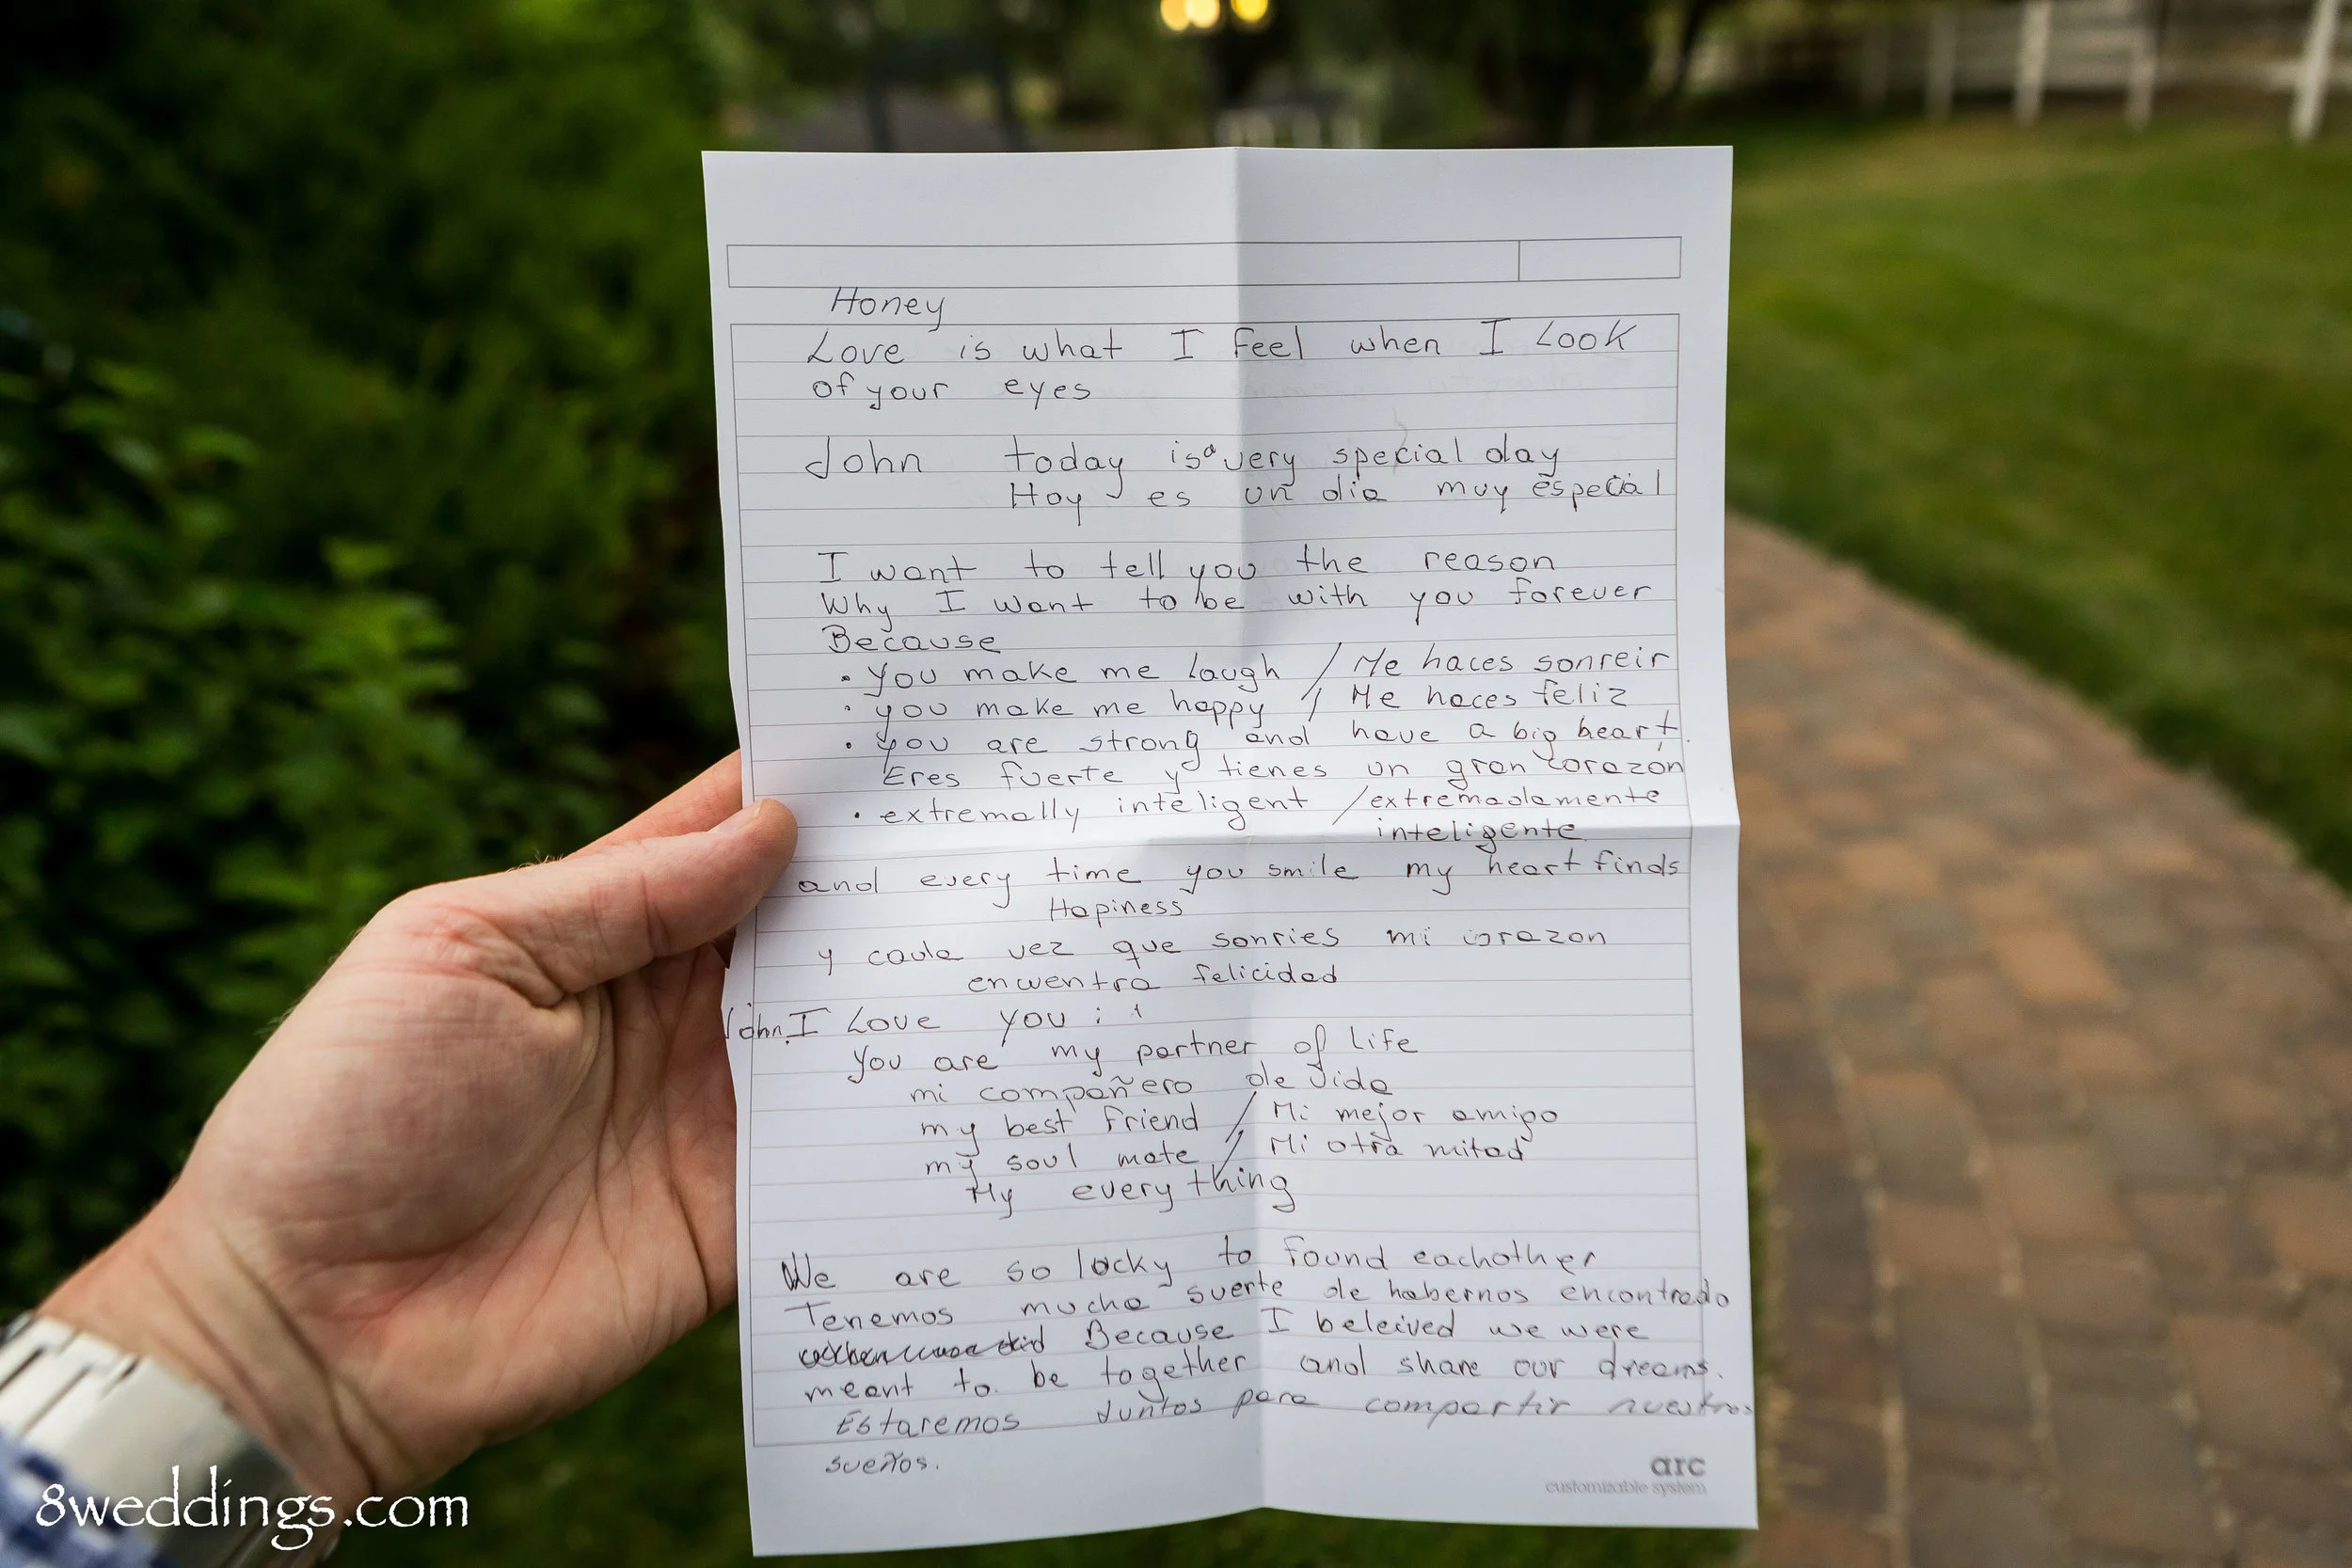 Honey
Love is what I feel when I Look
of your eyes
John today is a very special day
Hoy es un dia muy especial
I want to tell you the reason
Why I want to be with you forever
Because
• You make me laugh / Me haces sonreir
• you make me happy / Me haces feliz
• You are strong and have a big heart.
Eres fuerte y tienes un gran corazon
• extremally inteligent / extremadamente
inteligente
and every time you smile my heart finds
Hapiness
y cada vez que sonries mi corazon
encuentra felicidad
John, I Love you :
You are my partner of life
mi compañero de vida
my best friend / Mi mejor amigo
my soul mate / Mi otra mitad
My every thing
We are so locky to found eachother
Tenemos mucha suerte de habernos encontrado
Because I beleived we were
meant to be together and share our dreams.
Estaremos Juntos para compartir nuestros
sueños.
arc
customizable system
8weddings.com